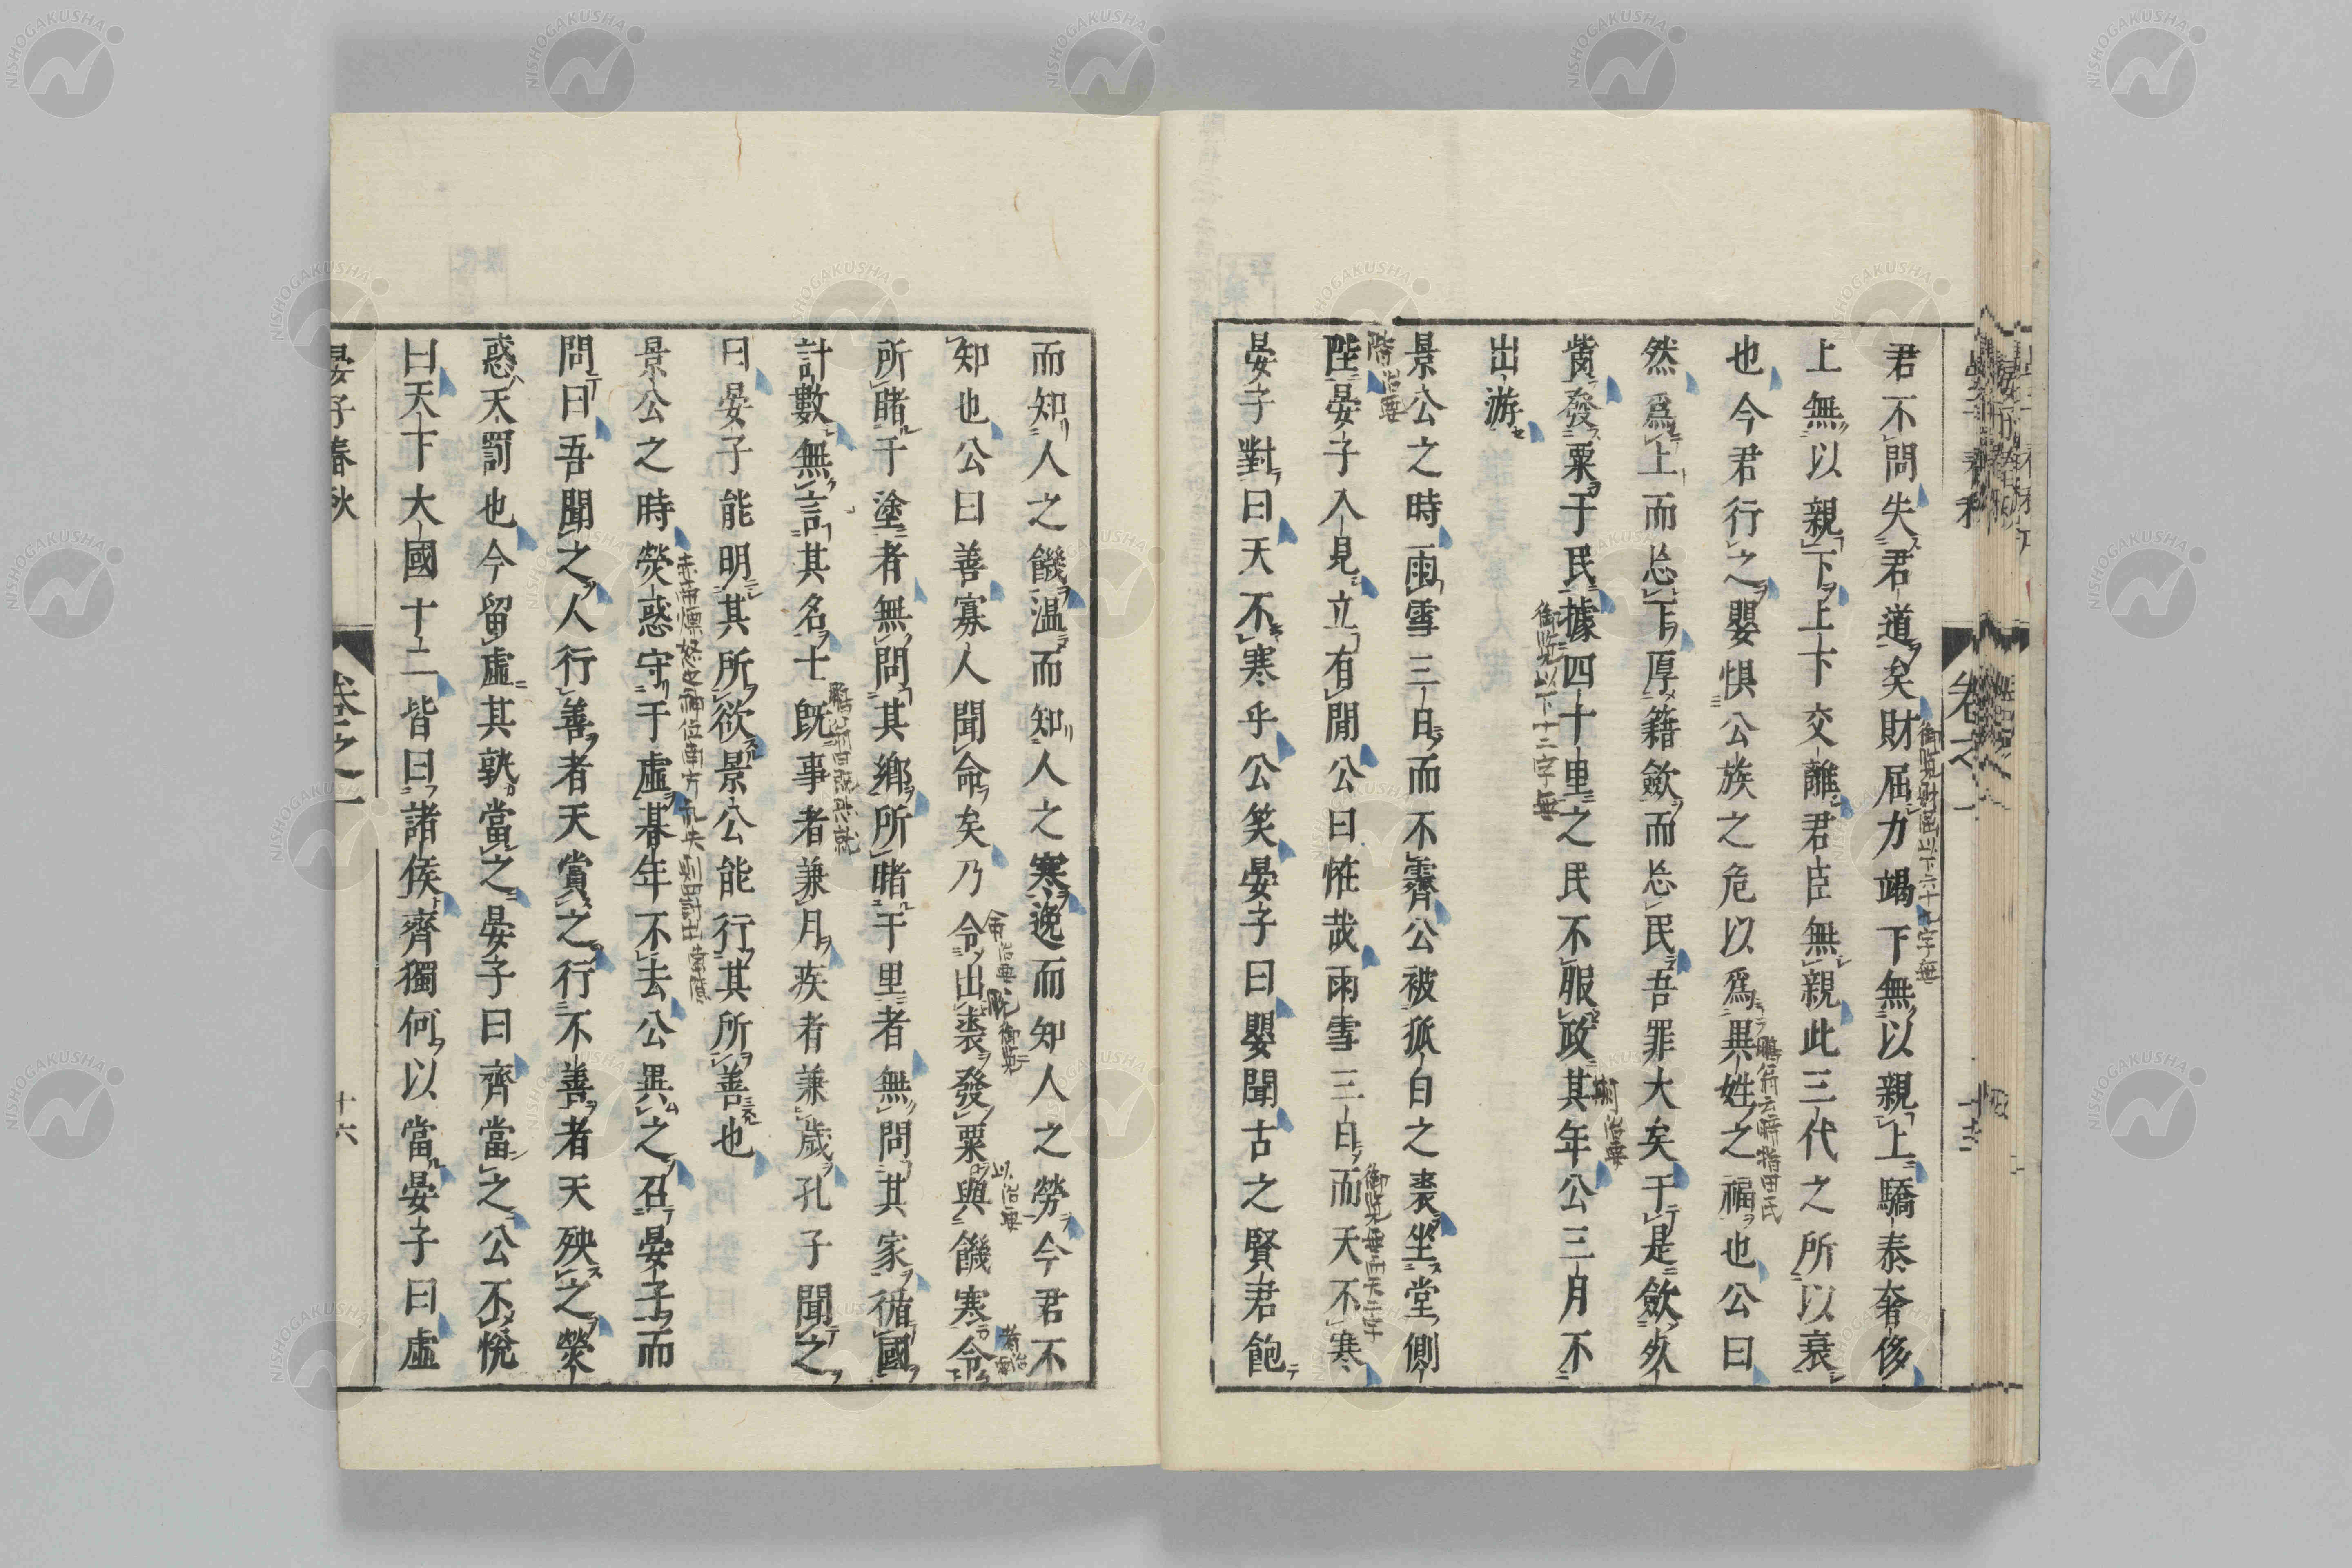 君不問失君道矣財屈力竭下無以親上驕泰奢侈
上無以親下上下交離君臣無親此三代之所以衰
也今君行之嬰惧公族之危以爲異姓之福也公曰
然爲上而忘下厚籍斂而忘民吾罪大矣于是斂死
胔發粟于民據四十里之民不服政其年公三月不
出游
景公之時雨雪三日而不霽公被狐白之裘坐堂側
陛晏子入見立有閒公曰怪哉雨雪三日而天不寒
晏子對曰天不寒乎公笑晏子曰嬰聞古之賢君飽
而知人之饑温而知人之寒逸而知人之勞今君不
知也公曰善寡人聞命矣乃令出裘發粟與饑寒令
所睹于塗者無問其鄉所睹于里者無問其家循國
計數無言其名士既事者兼月疾者兼歲孔子聞之
曰晏子能明其所欲景公能行其所善也
景公之時熒惑守于虛朞年不去公異之召晏子而
問曰吾聞之人行善者天賞之行不善者天殃之熒
惑天罰也今留虛其孰當之晏子曰齊當之公不悅
曰天下大國十二皆曰諸侯齊獨何以當晏子曰虛
晏子春秋
卷之一
十六
御覽財屈以下六十九字無
御覽以下十二字無
階治要
御覽無而天二字
NISHOGAKUSHA